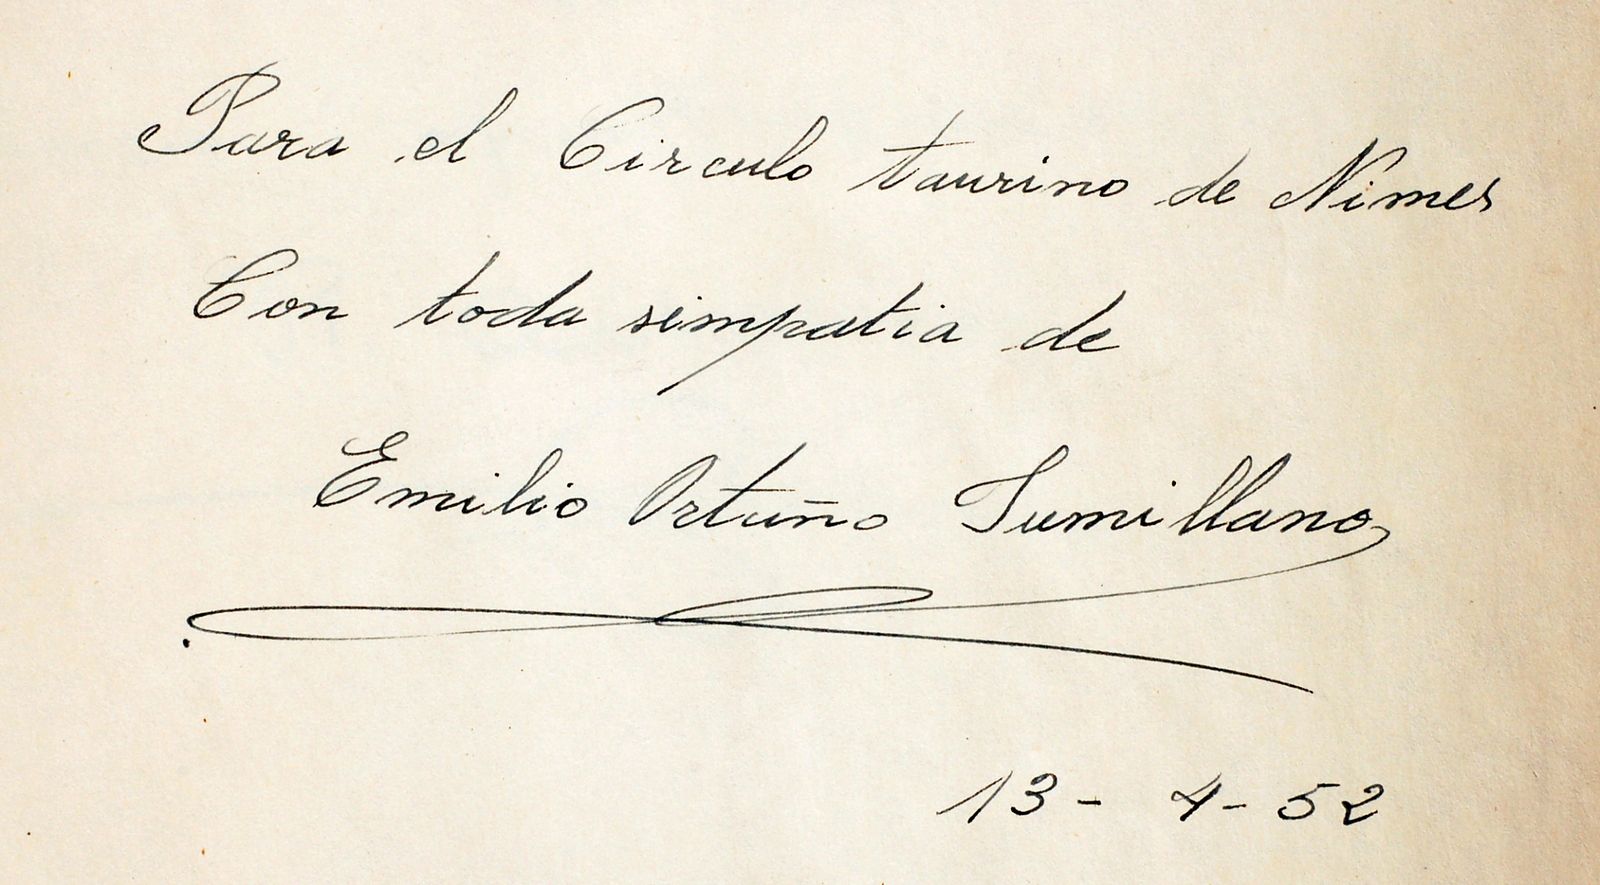 Para el Circulo taurino de Nimes
Con toda simpatia de
Emilio Ortuño Jumillano
13 - 4 - 52